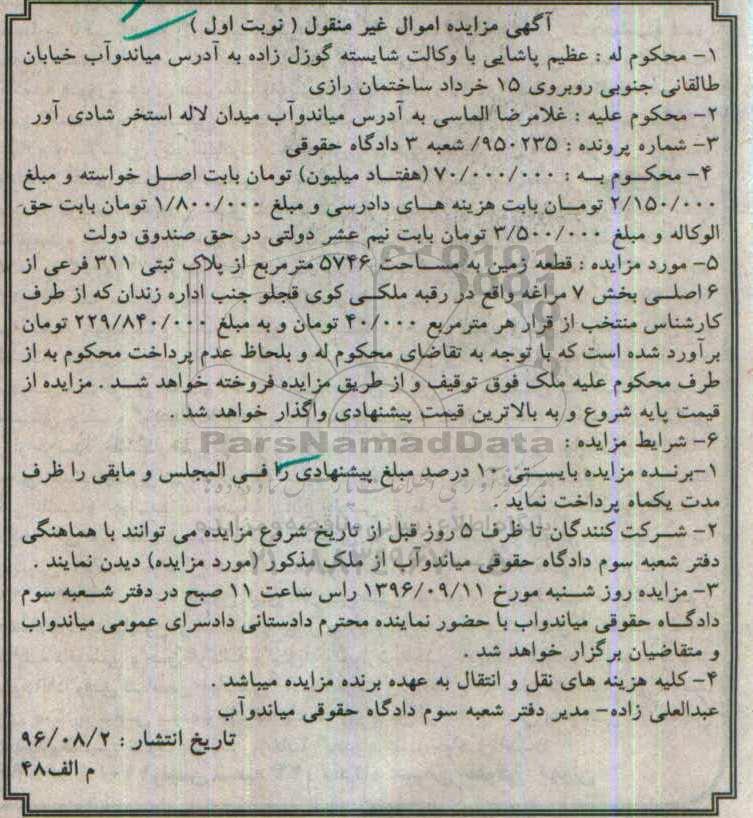 آگهی مزایده اموال غیر منقول ( نوبت اول )
۱- محکوم له : عظیم پاشایی با وکالت شایسته گوزل زاده به آدرس میاندوآب خیابان
طالقانی جنوبی روبروی ۱۵ خرداد ساختمان رازی
۲- محکوم علیه : غلامرضا الماسی به آدرس میاندوآب میدان لاله استخر شادی آور
۳- شماره پرونده : ۹۵۰۲۳۵/ شعبه ۳ دادگاه حقوقی
۴- محکوم به : ۷۰/۰۰۰/۰۰۰ (هفتاد میلیون) تومان بابت اصل خواسته و مبلغ
۲/۱۵۰/۰۰۰ تومان بابت هزینه های دادرسی و مبلغ ۱/۸۰۰/۰۰۰ تومان بابت حق
الوکاله و مبلغ ۳/۵۰۰/۰۰۰ تومان بابت نیم عشر دولتی در حق صندوق دولت
۵- مورد مزایده : قطعه زمین به مساحت ۵۷۴۶ مترمربع از پلاک ثبتی ۳۱۱ فرعی از
۶ اصلی بخش ۷ مراغه واقع در رقبه ملکی کوی قجلو جنب اداره زندان که از طرف
کارشناس منتخب از قرار هر مترمربع ۴۰/۰۰۰ تومان و به مبلغ ۲۲۹/۸۴۰/۰۰۰ تومان
برآورد شده است که با توجه به تقاضای محکوم له و بلحاظ عدم پرداخت محکوم به از
طرف محکوم علیه ملک فوق توقیف و از طریق مزایده فروخته خواهد شد . مزایده از
قیمت پایه شروع و به بالاترین قیمت پیشنهادی واگذار خواهد شد .
ParsNamadData
۶- شرایط مزایده :
۱-برنده مزایده بایستی ۱۰ درصد مبلغ پیشنهادی را فی المجلس و مابقی را ظرف
مدت یکماه پرداخت نماید .
۲- شرکت کنندگان تا ظرف ۵ روز قبل از تاریخ شروع مزایده می توانند با هماهنگی
دفتر شعبه سوم دادگاه حقوقی میاندوآب از ملک مذکور (مورد مزایده) دیدن نمایند .
۳- مزایده روز شنبه مورخ ۱۳۹۶/۰۹/۱۱ راس ساعت ۱۱ صبح در دفتر شعبه سوم
دادگاه حقوقی میاندواب با حضور نماینده محترم دادستانی دادسرای عمومی میاندواب
و متقاضیان برگزار خواهد شد .
۴- کلیه هزینه های نقل و انتقال به عهده برنده مزایده میباشد .
عبدالعلی زاده- مدیر دفتر شعبه سوم دادگاه حقوقی میاندوآب
تاریخ انتشار : ۹۶/۰۸/۲
م الف۴۸